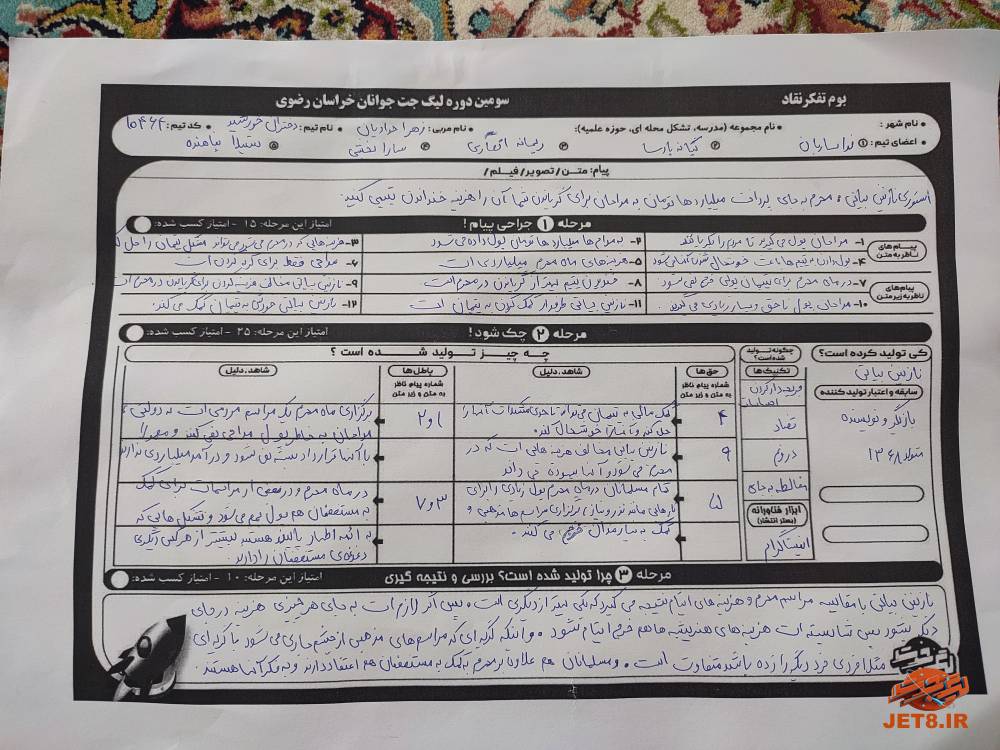 بوم تفکر نقاد
سومین دوره لیگ جت جوانان خراسان رضوی
نام شهر:
نام مجموعه (مدرسه، تشکل محله ای، حوزه علمیه):
نام مربی: زهرا مرادیان
نام تیم: دختران خورشید
کد تیم: ۱۰۴۶۴
اعضای تیم: ① ندا ساربان ② کیانا پارسا ③ ریحانه افشاری ④ سارا نختی ⑤ سیلا پناهنده
پیام: متن/تصویر/فیلم/
استوری نازنین بیاتی: محرم به جای پرداخت میلیاردها تومان به مداحان برای گریاندن تنها آن را هزینه خنداندن یتیمی کنید.
مرحله ① جراحی پیام!
امتیاز این مرحله: ۱۵ - امتیاز کسب شده:
پیام‌های ناظر به متن
۱- مداحان پول می گیرند تا مردم را بگریانند
۲- به مداح ها میلیاردها تومان پول داده می شود
۳- هزینه هایی که در محرم می شود می تواند مشکل یتیمان را حل
۴- پول دادن به یتیم ها باعث خوشحال شدن آنها می شود
۵- هزینه های ماه محرم میلیاردی است
۶- مداحی فقط برای گریه کردن است
پیام‌های ناظر به زیر متن
۷- در ماه محرم برای یتیمان پولی خرج نمی شود
۸- خندیدن یتیم بهتر از گریاندن در محرم است
۹- نازنین بیاتی مخالف هزینه کردن برای گریاندن در محرم است
۱۰- مداحان پول ناحق و بسیار زیادی می گیرند
۱۱- نازنین بیاتی طرفدار کمک کردن به یتیمان است
۱۲- نازنین بیاتی خودش به یتیمان کمک می کند.
مرحله ② چک شود!
امتیاز این مرحله: ۲۵ - امتیاز کسب شده:
کی تولید کرده است؟
نازنین بیاتی
سابقه و اعتبار تولید کننده
بازیگر و نویسنده
متولد ۱۳۶۸
چگونه تولید شده است؟
تکنیک‌ها
جریحه دار کردن احساسات
تضاد
دروغ
مغالطه به جای
ابزار فناورانه (بستر انتشار)
اینستاگرام
چه چیز تولید شده است؟
حق‌ها
شماره پیام ناظر به متن و زیر متن
شاهد، دلیل
۴
کمک مالی به یتیمان می تواند تا حدی مشکلات آنها را
حل کند و آنها را خوشحال کند.
۹
نازنین بیاتی مخالف هزینه هایی است که در
محرم می شود و آنها بیهوده می داند
۵
تمام مسلمانان در ماه محرم پول زیادی را برای
کارهایی مانند نذر و نیاز، برگزاری مراسم ها مذهبی و
کمک به نیازمندان خرج می کنند.
باطل‌ها
شماره پیام ناظر به متن و زیر متن
شاهد، دلیل
۱ و ۲
برگزاری ماه محرم یک مراسم مردمی است نه دولتی
مداحان به خاطر پول مداحی نمی کنند و معمولا
با آنها قرارداد بسته نمی شود و درآمد میلیاردی ندارند
۳ و ۷
در ماه محرم و در بعضی از مراسمات برای کمک
به مستضعفان هم پول جمع می شود و تشکل هایی که
به ائمه اطهار پایبند هستند بیشتر از هر کس دیگری
دغدغه ی مستضعفان را دارند.
مرحله ③ چرا تولید شده است؟ بررسی و نتیجه گیری
امتیاز این مرحله: ۱۰ - امتیاز کسب شده:
نازنین بیاتی با مقایسه مراسم محرم و هزینه های ایتام نتیجه می گیرد که یکی بهتر از دیگری است. پس اگر لازم است به جای هر چیزی هزینه در جای
دیگر بشود پس شایسته است هزینه های هنرپیشه ها هم خرج ایتام بشود. و اینکه گریه ای که مراسم های مذهبی از چشم جاری می شود با گریه ای
مثلا فردی فرد دیگر را زده باشد متفاوت است. و مسلمانان هم علاوه بر محرم به کمک به مستضعفان هم اعتقاد دارند و به فکر آنها هستند.
JET8.IR